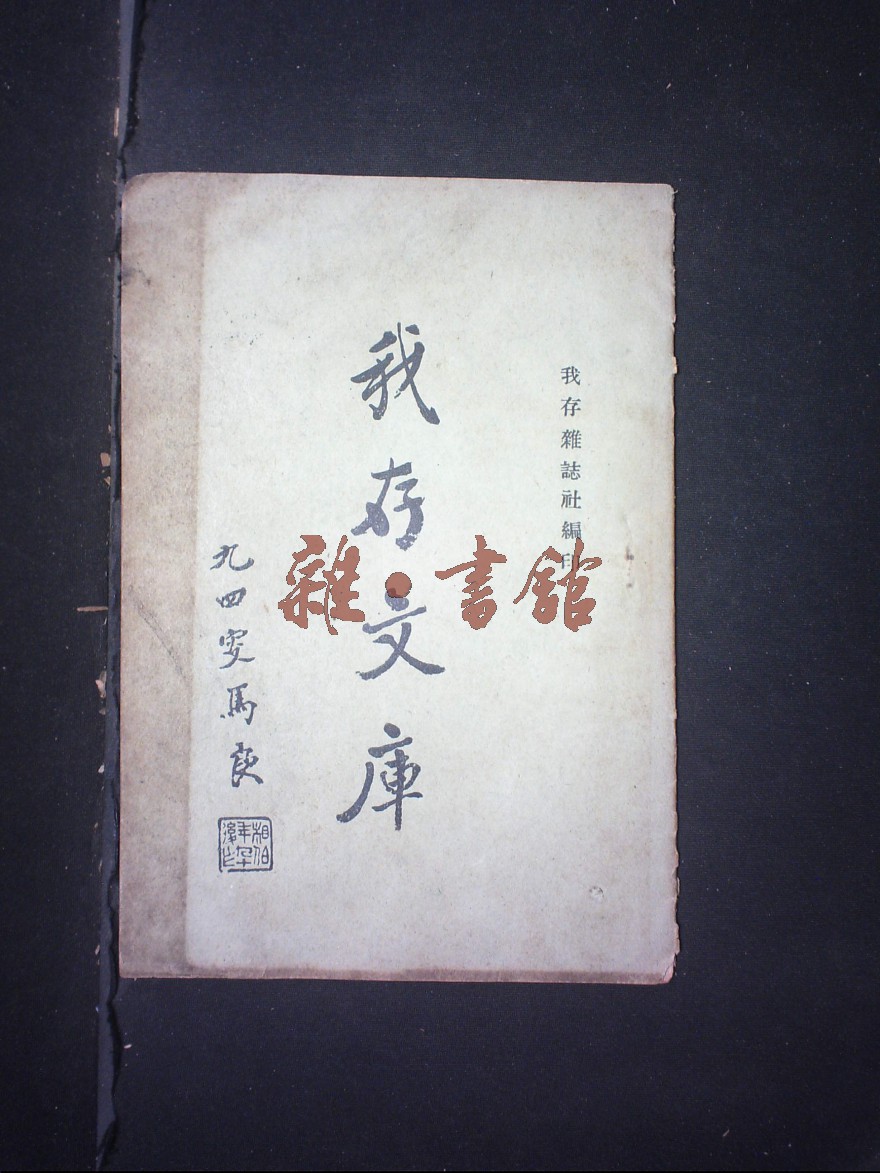 我存雜誌社編印
我存文庫
九四叟馬良
相伯
雜·書館